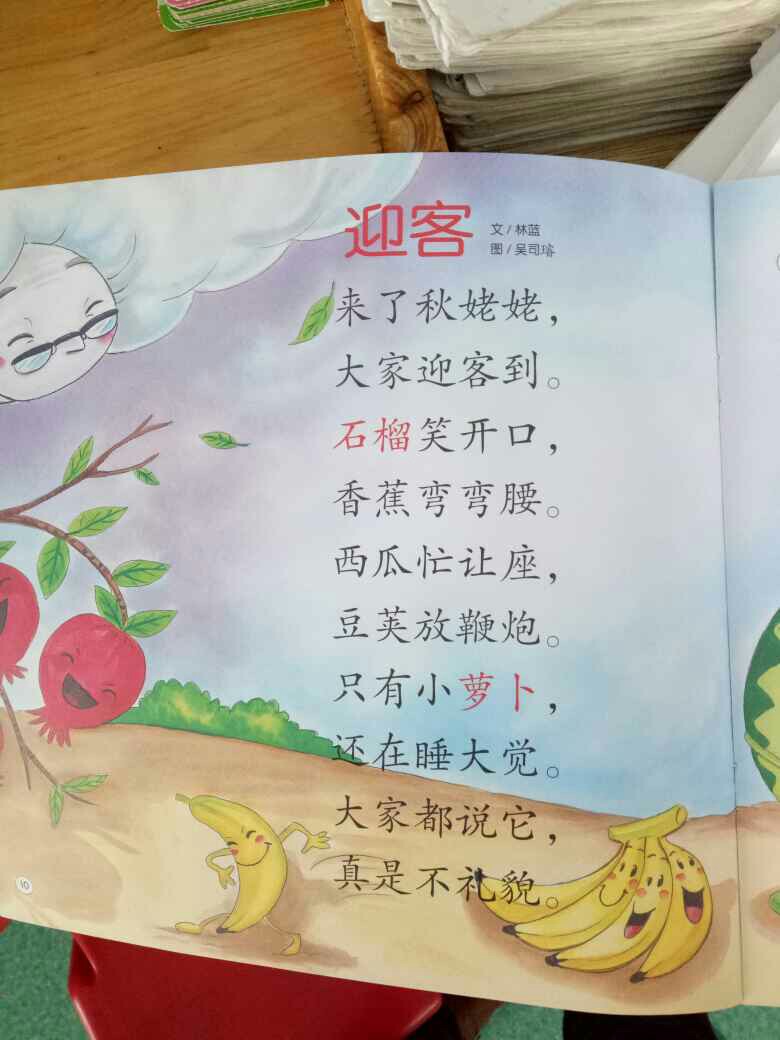 迎客
文/林蓝
图/吴司璿
来了秋姥姥，
大家迎客到。
石榴笑开口，
香蕉弯弯腰。
西瓜忙让座，
豆荚放鞭炮。
只有小萝卜，
还在睡大觉。
大家都说它，
真是不礼貌。
10